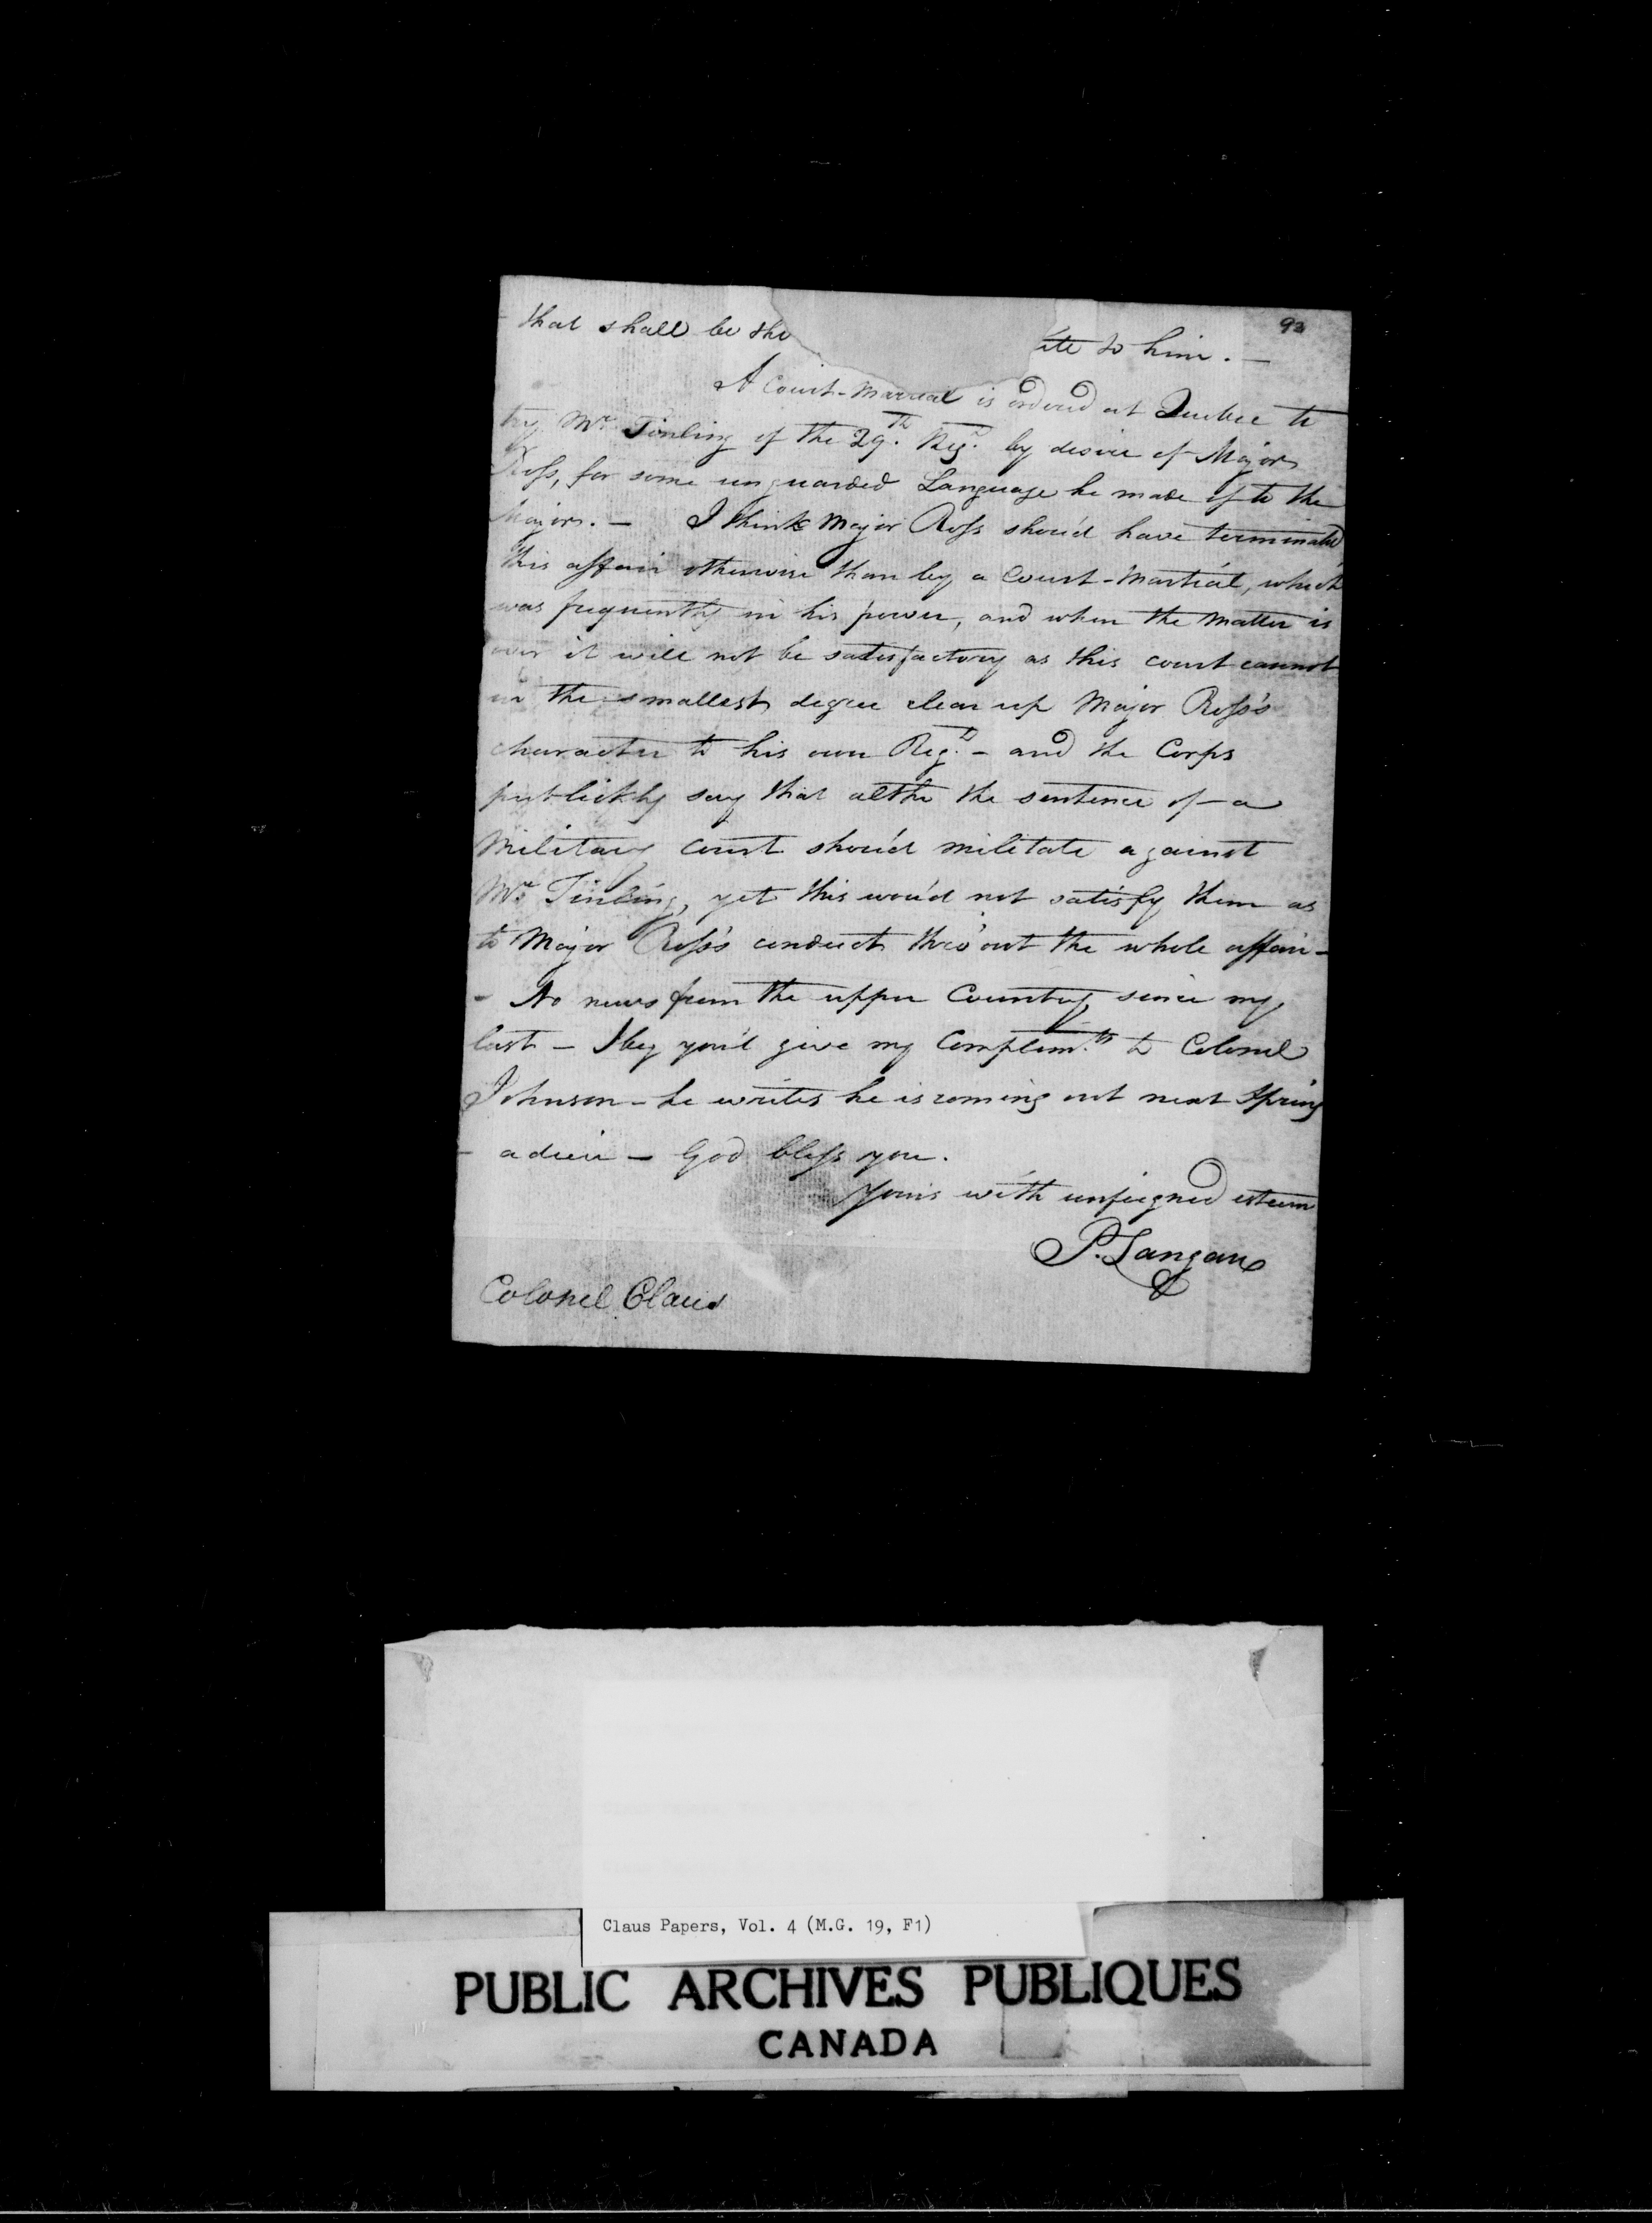 93
that shall be the
ite to him. —
A Court-Martial is ordered at Quebec to
try Mr. Tinling of the 29.th Reg.t by desire of Major
Ross, for some unguarded Language he made of to the
Major. — I think Major Ross shou'd have terminated
this affair otherwise than by a Court-Martial, which
was frequently in his power, and when the Matter is
over it will not be satisfactory as this court cannot
in the smallest degree clear up Major Ross's
character to his own Reg.t — and the Corps
publickly say that altho the sentence of a
Military Court shou'd militate against
Mr. Tinling, yet this wou'd not satisfy them as
to Major Ross's conduct thro'out the whole affair —
- No news from the upper Country since my
last — I beg you'd give my Complim.ts to Colonel
Johnson — he writes he is coming out next Spring
- adieu — God bless you.
Yours with unfeigned esteem
P. Langan
Colonel Claus
Claus Papers, Vol. 4 (M.G. 19, F1)
PUBLIC ARCHIVES PUBLIQUES
CANADA